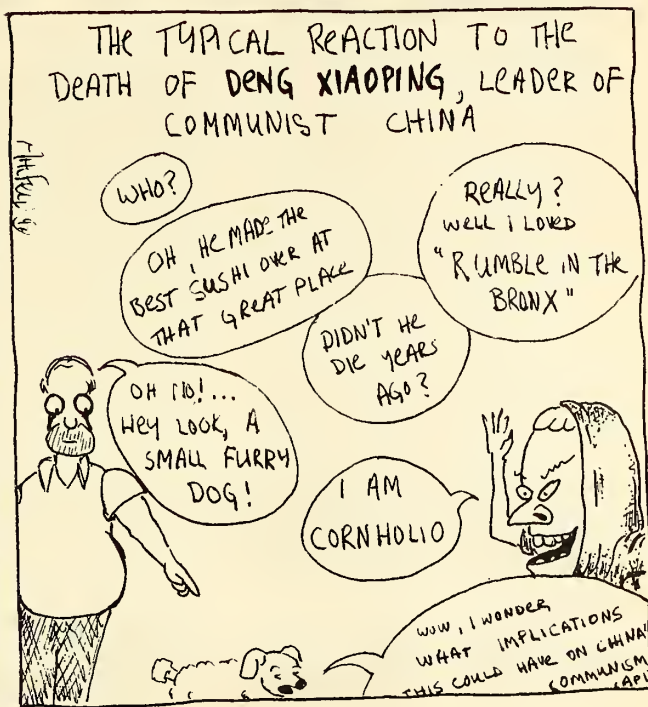 THE TYPICAL REACTION TO THE
DEATH OF DENG XIAOPING, LEADER OF
COMMUNIST CHINA
WHO?
OH, HE MADE THE
BEST SUSHI OVER AT
THAT GREAT PLACE
REALLY?
WELL I LOVED
"RUMBLE IN THE
BRONX"
DIDN'T HE
DIE YEARS
AGO?
OH NO!...
HEY LOOK, A
SMALL FURRY
DOG!
I AM
CORNHOLIO
WOW, I WONDER
WHAT IMPLICATIONS
THIS COULD HAVE ON CHINA'
COMMUNISM